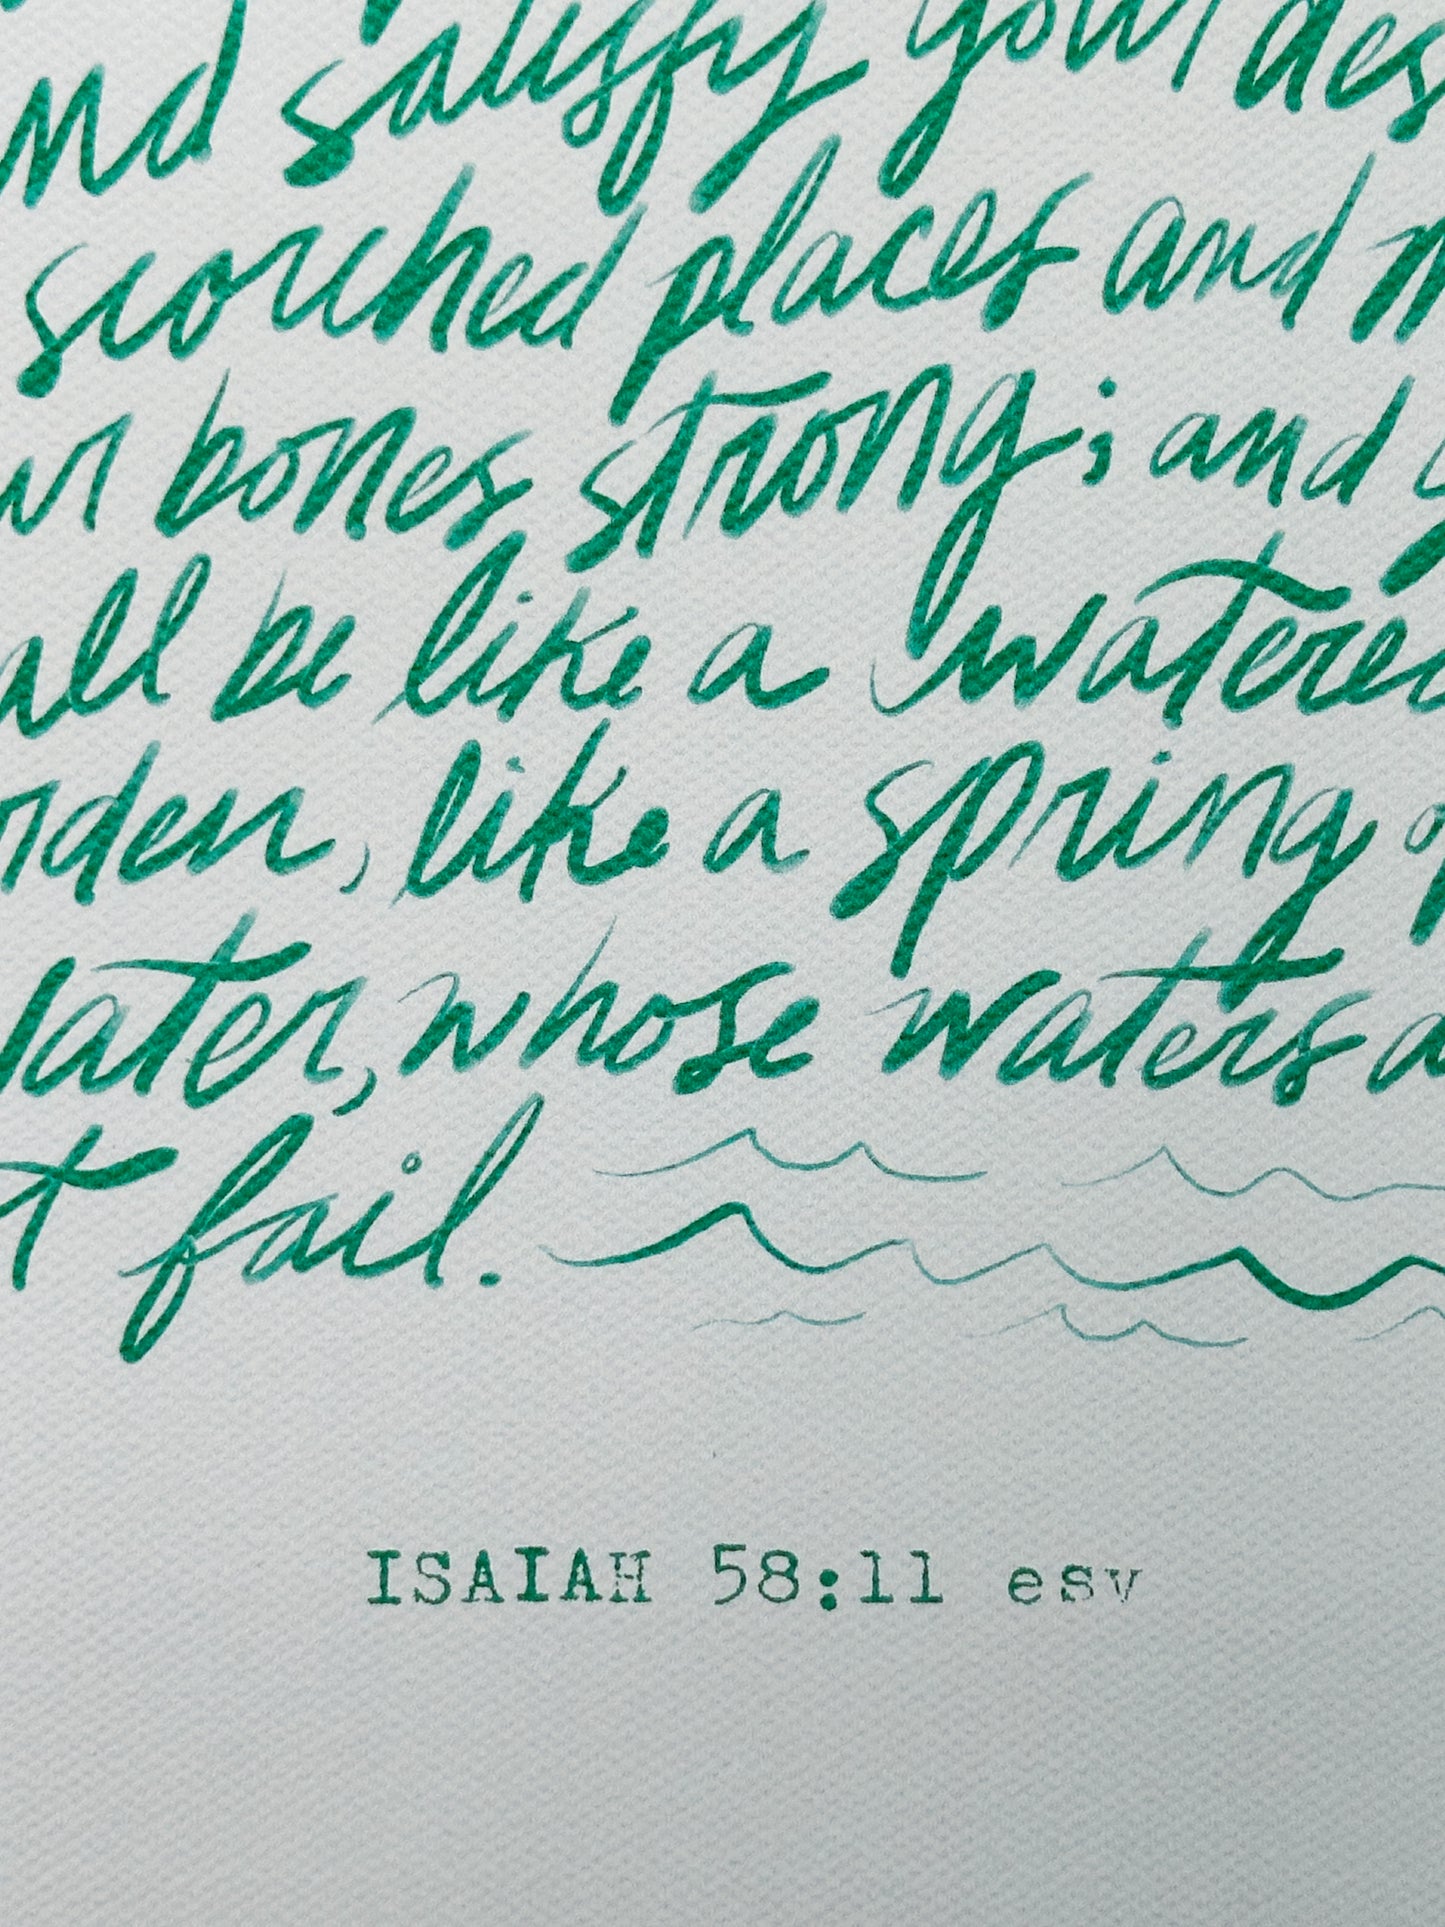 nd satisfy your des
scorched places and m
ur bones strong; and y
all be like a watered
rden, like a spring of
water, whose waters d
t fail.
ISAIAH 58:11 esv